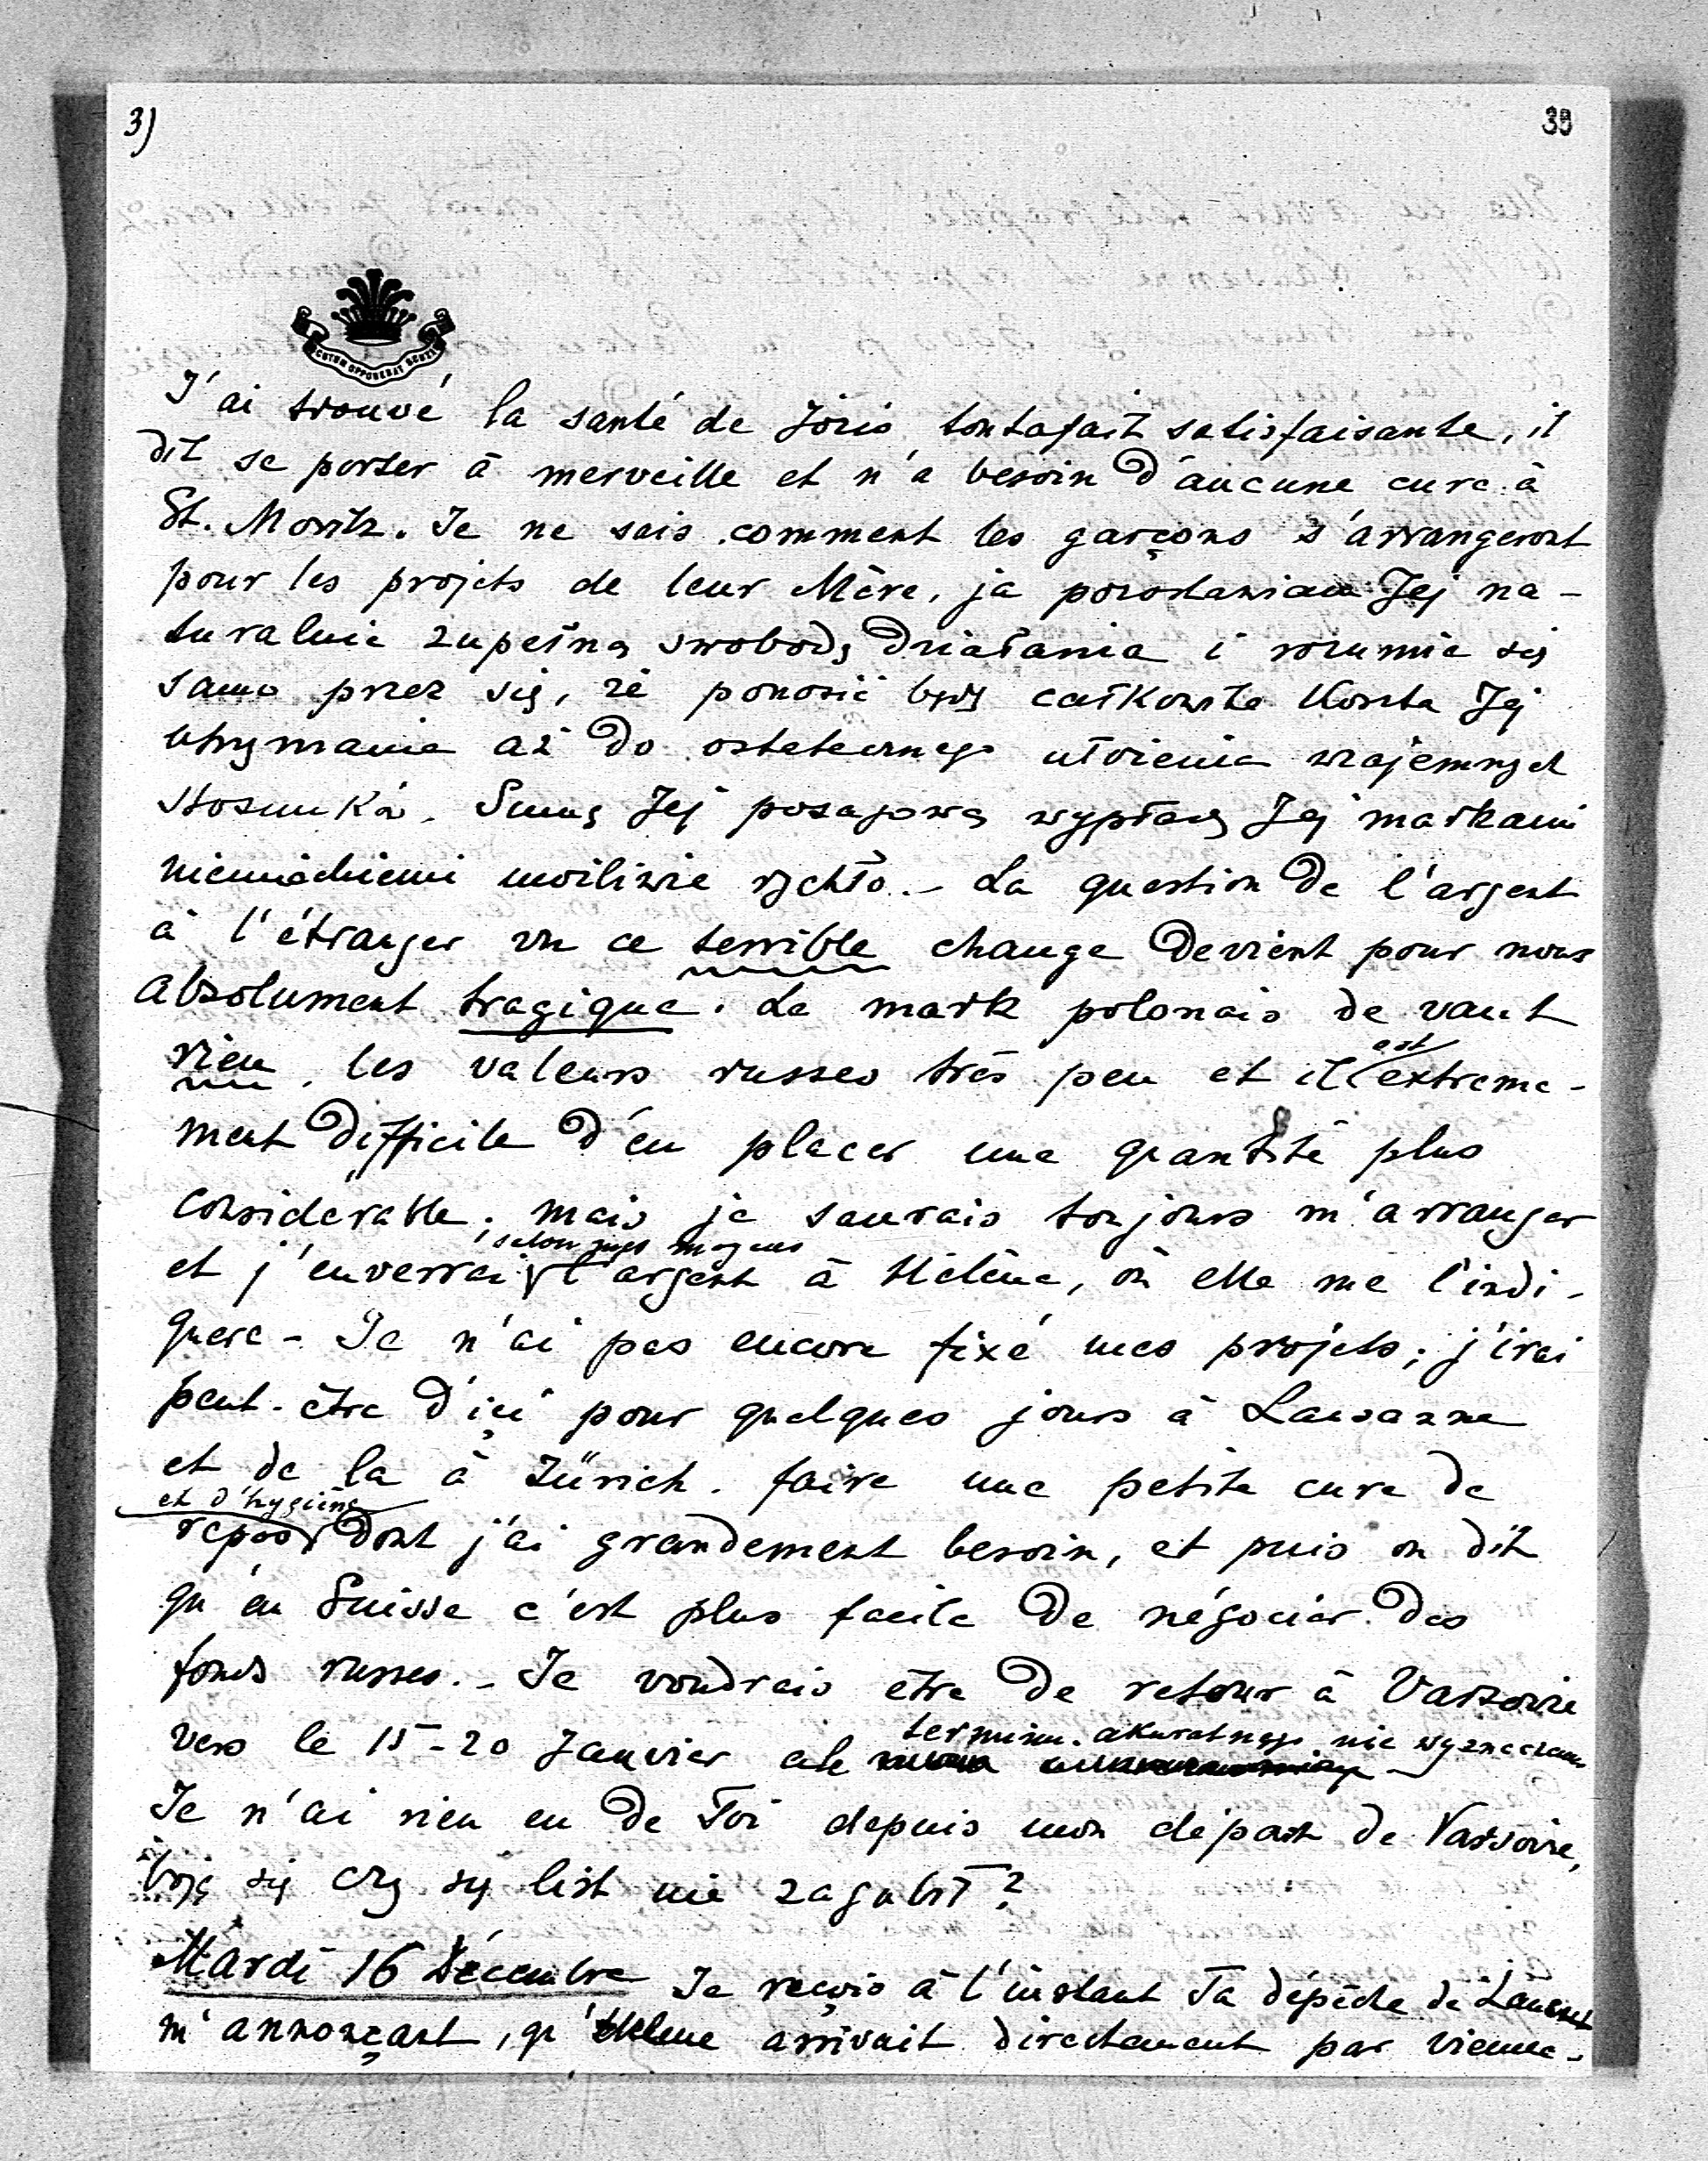 3)
39
SCUTUM OPPONEBAT SCUTI
J'ai trouvé la santé de Józio toutafait satisfaisante, il
dit se porter à merveille et n'a besoin d'aucune cure à
St. Moritz. Je ne sais comment les garçons s'arrangeront
pour les projets de leur Mère, ja pozostawiam Jej na-
turalnie zupełną swobodę działania i rozumie się
samo przez się, że ponosić będę całkowite koszta Jej
utrzymania aż do ostatecznego ułożenia wzajemnych
stosunków. Sumę Jej posagową wypłacę Jej markami
niemieckiemi możliwie rychło. - La question de l'argent
à l'étranger vu ce terrible change devient pour nous
absolument tragique. Le mark polonais de vaut
rien, les valeurs russes très peu et il est extreme-
ment difficile d'en placer une quantité plus
considérable. mais je saurais toujours m'arranger
et j'enverrai selon mes moyens l'argent à Hélène, où elle me l'indi-
quera - Je n'ai pas encore fixé mes projets; j'irai
peut-être d'içi pour quelques jours à Lausanne
et de la à Zürich. faire une petite cure de
repos et d'hygiène dont j'ai grandement besoin, et puis on dit
qu'en Suisse c'est plus facile de négocier des
fonds russes. - Je voudrais etre de retour à Varsovie
vers le 15-20 Janvier ale terminu akuratnego nie wyznaczam
Je n'ai rien eu de Toi depuis mon départ de Varsovie,
boję się czy się list nie zagubił?
Mardi 16 Décembre Je reçois à l'instant Ta dépêche de Łańcut
m'annonçant, qu'Hélène arrivait directement par Vienne.